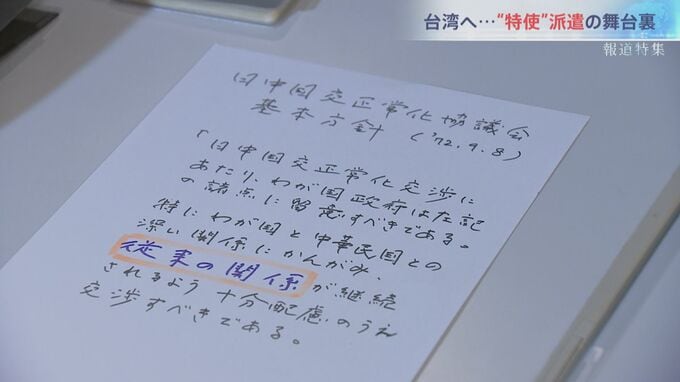 台湾へ…“特使”派遣の舞台裏
報道特集
日中国交正常化協議会
基本方針 ('72.9.8)
「日中国交正常化交渉に
あたり、わが国政府は左記
の諸点に留意すべきである。
特にわが国と中華民国との
深い関係にかんがみ、
従来の関係が継続
されるよう十分配慮のうえ
交渉すべきである。